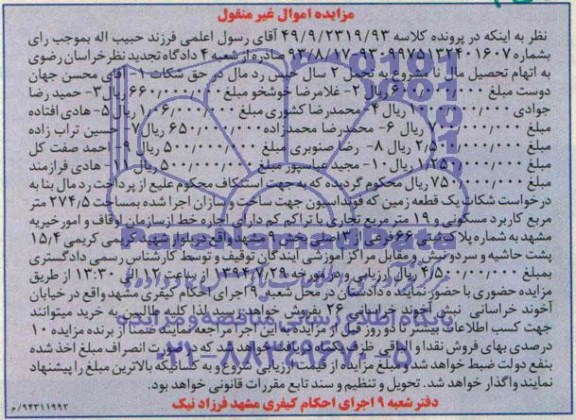 مزایده اموال غیر منقول
نظر به اینکه در پرونده کلاسه ۴۹/۹/۲۳۱۹/۹۳ آقای رسول اعلمی فرزند حبیب اله بموجب رای
بشماره ۹۳۰۹۹۷۵۱۳۲۴۰۱۶۰۷-۹۳/۸/۱۷ صادره از شعبه ۴ دادگاه تجدید نظر خراسان رضوی
به اتهام تحصیل مال نا مشروع به تحمل ۲ سال حبس رد مال در حق شکات ۱- آقای محسن جهان
دوست مبلغ ۶۰۰/۰۰۰/۰۰۰ ریال ۲- غلامرضا خوشخو مبلغ ۶۶۰/۰۰۰/۰۰۰ ریال ۳- حمید رضا
جوادی ۱/۰۰۰/۰۰۰/۰۰۰ ریال ۴- محمدرضا کشوری مبلغ ۱/۰۶۰/۰۰۰/۰۰۰ ریال ۵- هادی افتاده
مبلغ ۷۰۰/۰۰۰/۰۰۰ ریال ۶- محمدرضا محمدزاده ۶۵۰/۰۰۰/۰۰۰ ریال ۷- حسین تراب زاده
مبلغ ۲/۵۰۰/۰۰۰/۰۰۰ ریال ۸- رضا صنوبری مبلغ ۵۰۰/۰۰۰/۰۰۰ ریال ۹- احمد صفت کل
مبلغ ۱/۲۵۰/۰۰۰/۰۰۰ ریال ۱۰- مجید عباسپور مبلغ ۵۰۰/۰۰۰/۰۰۰ ریال ۱۱- هادی فرازمند
مبلغ ۷۵۰/۰۰۰/۰۰۰ ریال محکوم گردیده که به جهت استنکاف محکوم علیه از پرداخت رد مال بنا به
درخواست شکات یک قطعه زمین که فونداسیون جهت ساخت و سازان اجرا شده بمساحت ۲۷۴/۵ متر
مربع کاربرد مسکونی و ۱۹ متر مربع تجاری با تراکم کم دارای اجاره خط از سازمان اوقاف و امور خیریه
مشهد به شماره پلاک ثبتی ۶۶ فرعی از ۳ اصلی بخش ۹ مشهد واقع در بلوار شهید کریمی کریمی ۱۵/۴
پشت حاشیه و سردونبش و مقابل مراکز آموزشی آیندگان توقیف و توسط کارشناس رسمی دادگستری
بمبلغ ۴/۵۰۰/۰۰۰/۰۰۰ ریال ارزیابی و در مورخه ۱۳۹۴/۷/۲۹ از ساعت ۱۲ الی ۱۳:۳۰ از طریق
مزایده حضوری با حضور نماینده دادستان در محل شعبه ۹ اجرای احکام کیفری مشهد واقع در خیابان
آخوند خراسانی نبش آخوند خراسانی ۲۶ بفروش خواهد رسید لذا کلیه طالبین به خرید میتوانند
جهت کسب اطلاعات بیشتر تا دو روز قبل از مزایده به این اجرا مراجعه نمایند ضمنا از برنده مزایده ۱۰
درصدی بهای فروش نقدا و الباقی ظرف یکماه دریافت خواهد شد که در صورت انصراف مبلغ اخذ شده
بنفع دولت ضبط خواهد شد و مبلغ مزایده از قیمت ارزیابی شروع و به کسانیکه بالاترین مبلغ را پیشنهاد
نمایند واگذار خواهد شد. تحویل و تنظیم و سند تابع مقررات قانونی خواهد بود.
دفتر شعبه ۹ اجرای احکام کیفری مشهد فرزاد نیک
۹۴۳۱۱۹۹۲/م
ParsNamadData
۰۲۱-۸۸۳۴۹۶۷۰-۵